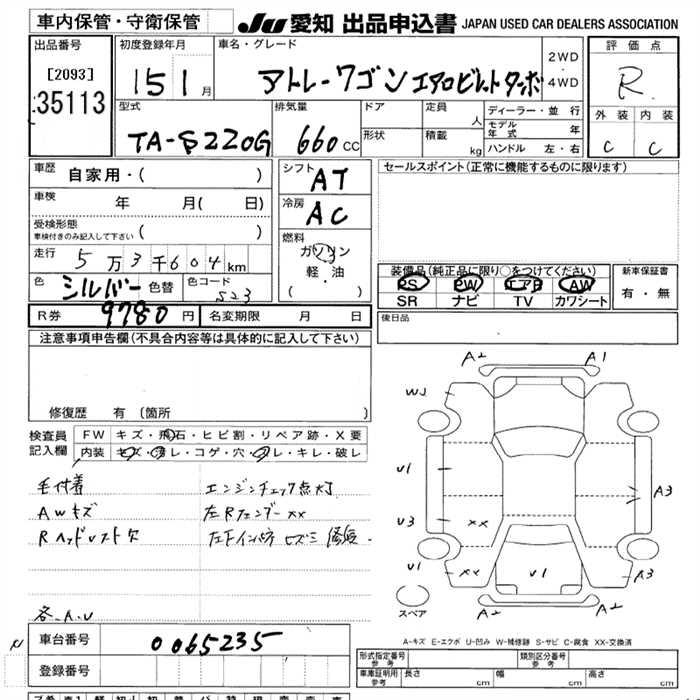 車内保管・守衛保管
JU 愛知 出品申込書 JAPAN USED CAR DEALERS ASSOCIATION
出品番号
[2093]
35113
初度登録年月
15 1月
車名・グレード
アトレーワゴン エアロビレットターボ
2WD
4WD
評価点
R
外装 内装
C C
型式
TA-S220G
排気量
660cc
ドア
形状
定員
人
積載
kg
ディーラー・並行
モデル年式 年
ハンドル 左・右
車歴
自家用・( )
車検
年 月( 日)
受検形態
車検付きのみ記入して下さい ( )
走行
5万3千604km
色
シルバー 色替
色コード
S23
シフト
AT
冷房
AC
燃料
ガソリン
軽・油
( ・ )
セールスポイント(正常に機能するものに限ります)
装備品(純正品に限り○をつけてください)
PS PW エアB AW
SR ナビ TV カワシート
新車保証書
有・無
R券 9780円
名変期限 月 日
後日品
注意事項申告欄(不具合内容等は具体的に記入して下さい)
修復歴 有(箇所 )
検査員
記入欄
FW キズ・飛石・ヒビ割・リペア跡・X要
内装 キズ・汚レ・コゲ・穴・スレ・キレ・破レ
毛付着
AWキズ
Rヘッドレスト欠
各.A.U
エンジンチェック点灯
左Rフェンダーxx
A2 A1
WJ
U1
U3
xx
A3
U1 xx
U1
A3
A2 A2
スペア
A-キズ E-エクボ U-凹み W-補修跡 S-サビ C-腐食 XX-交換済
N
車台番号 0065235
登録番号
形式指定番号
参考
類別区分番号
参考
車庫証明用
参考
長さ cm
幅 cm
高さ cm